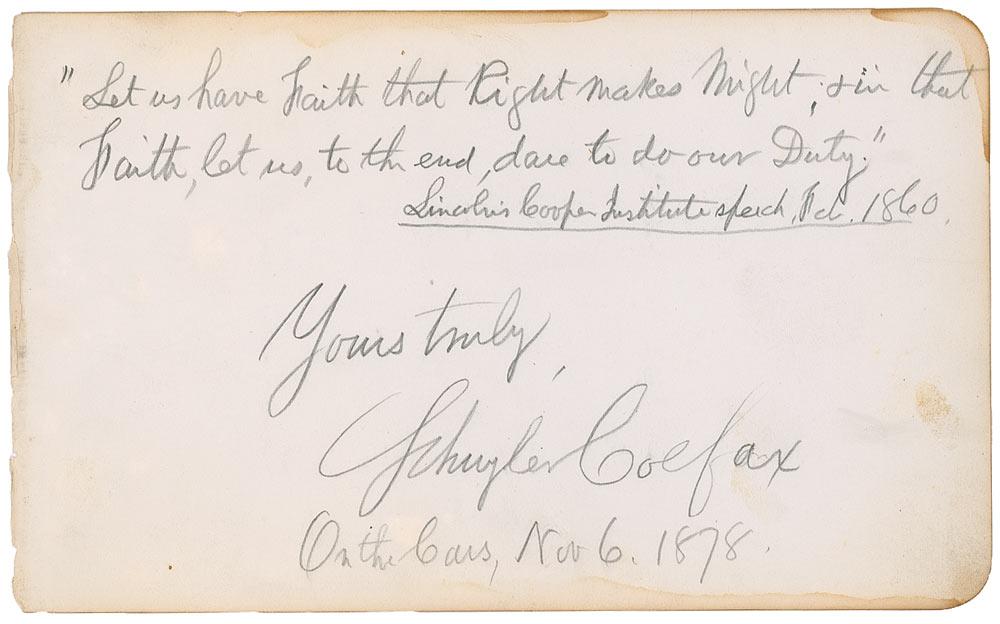 "Let us have Faith that Right makes Might; & in that
Faith, let us, to the end, dare to do our Duty."
Lincoln's Cooper Institute speech, Feb. 1860.
Yours truly,
Schuyler Colfax
On the Cars, Nov 6. 1878.